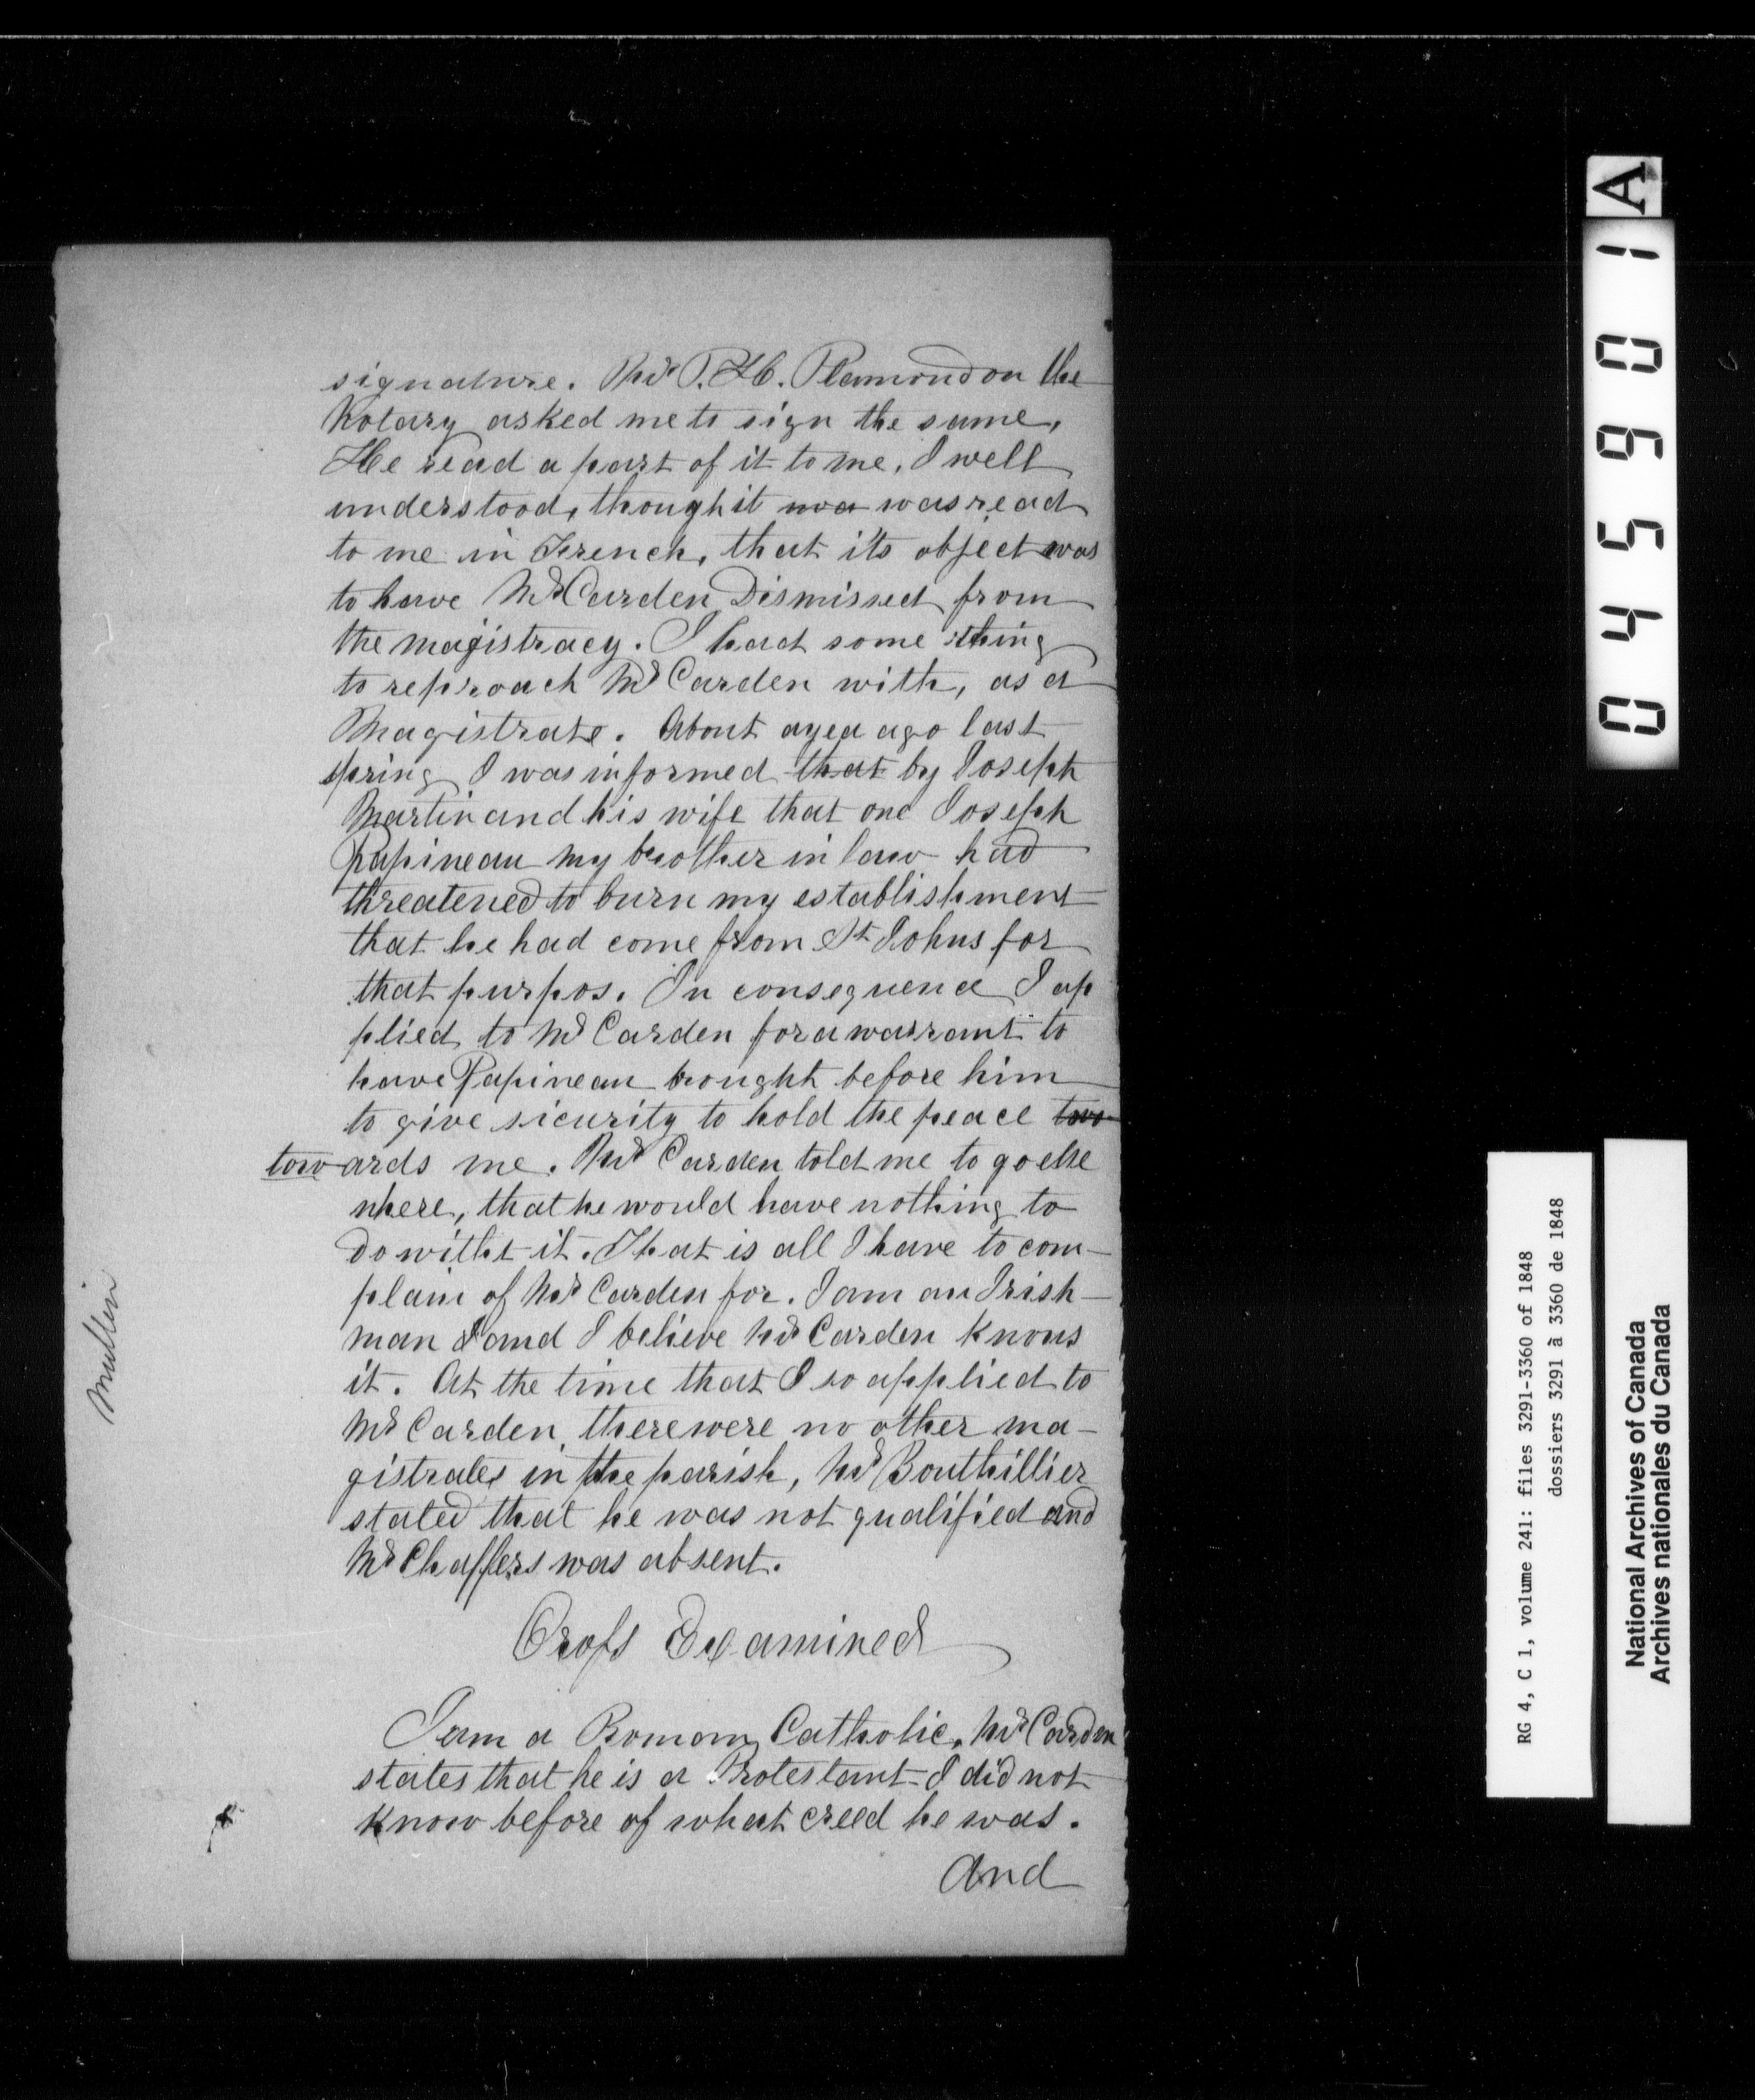 signature. Mr P. H. Plamondon the
Notary asked me to sign the same,
He read a part of it to me, I well
understood, though it wa was read
to me in French, that its object was
to have Mr Carden Dismissed from
the magistracy. I had some thing
to reproach Mr Carden with, as a
Magistrate. About ayea ago last
spring I was informed that by Joseph
Martin and his wife that one Joseph
Papineau my brother in law had
threatened to burn my establishment
that he had come from St Johns for
that purpos. In consequence I ap
plied to Mr Carden for a warrant to
have Papineau brought before him
to give sicurity to hold the peace two
towards me. Mr Carden told me to go else
where, that he would have nothing to
do witht it. That is all I have to com-
plain of Mr Carden for. I am an Irish-
man & and I believe Mr Carden knows
it. At the time that I so applied to
Mr Carden, there were no other ma-
gistrates in the parish, Mr Bouthillier
stated that he was not qualified and
Mr Chaffers was absent.
Cross Examined
I am a Roman Catholic, Mr Carden
states that he is a Protestant - I did not
know before of what creed he was.
And
Mullin
A
045901
RG 4, C 1, volume 241: files 3291-3360 of 1848
dossiers 3291 à 3360 de 1848
National Archives of Canada
Archives nationales du Canada